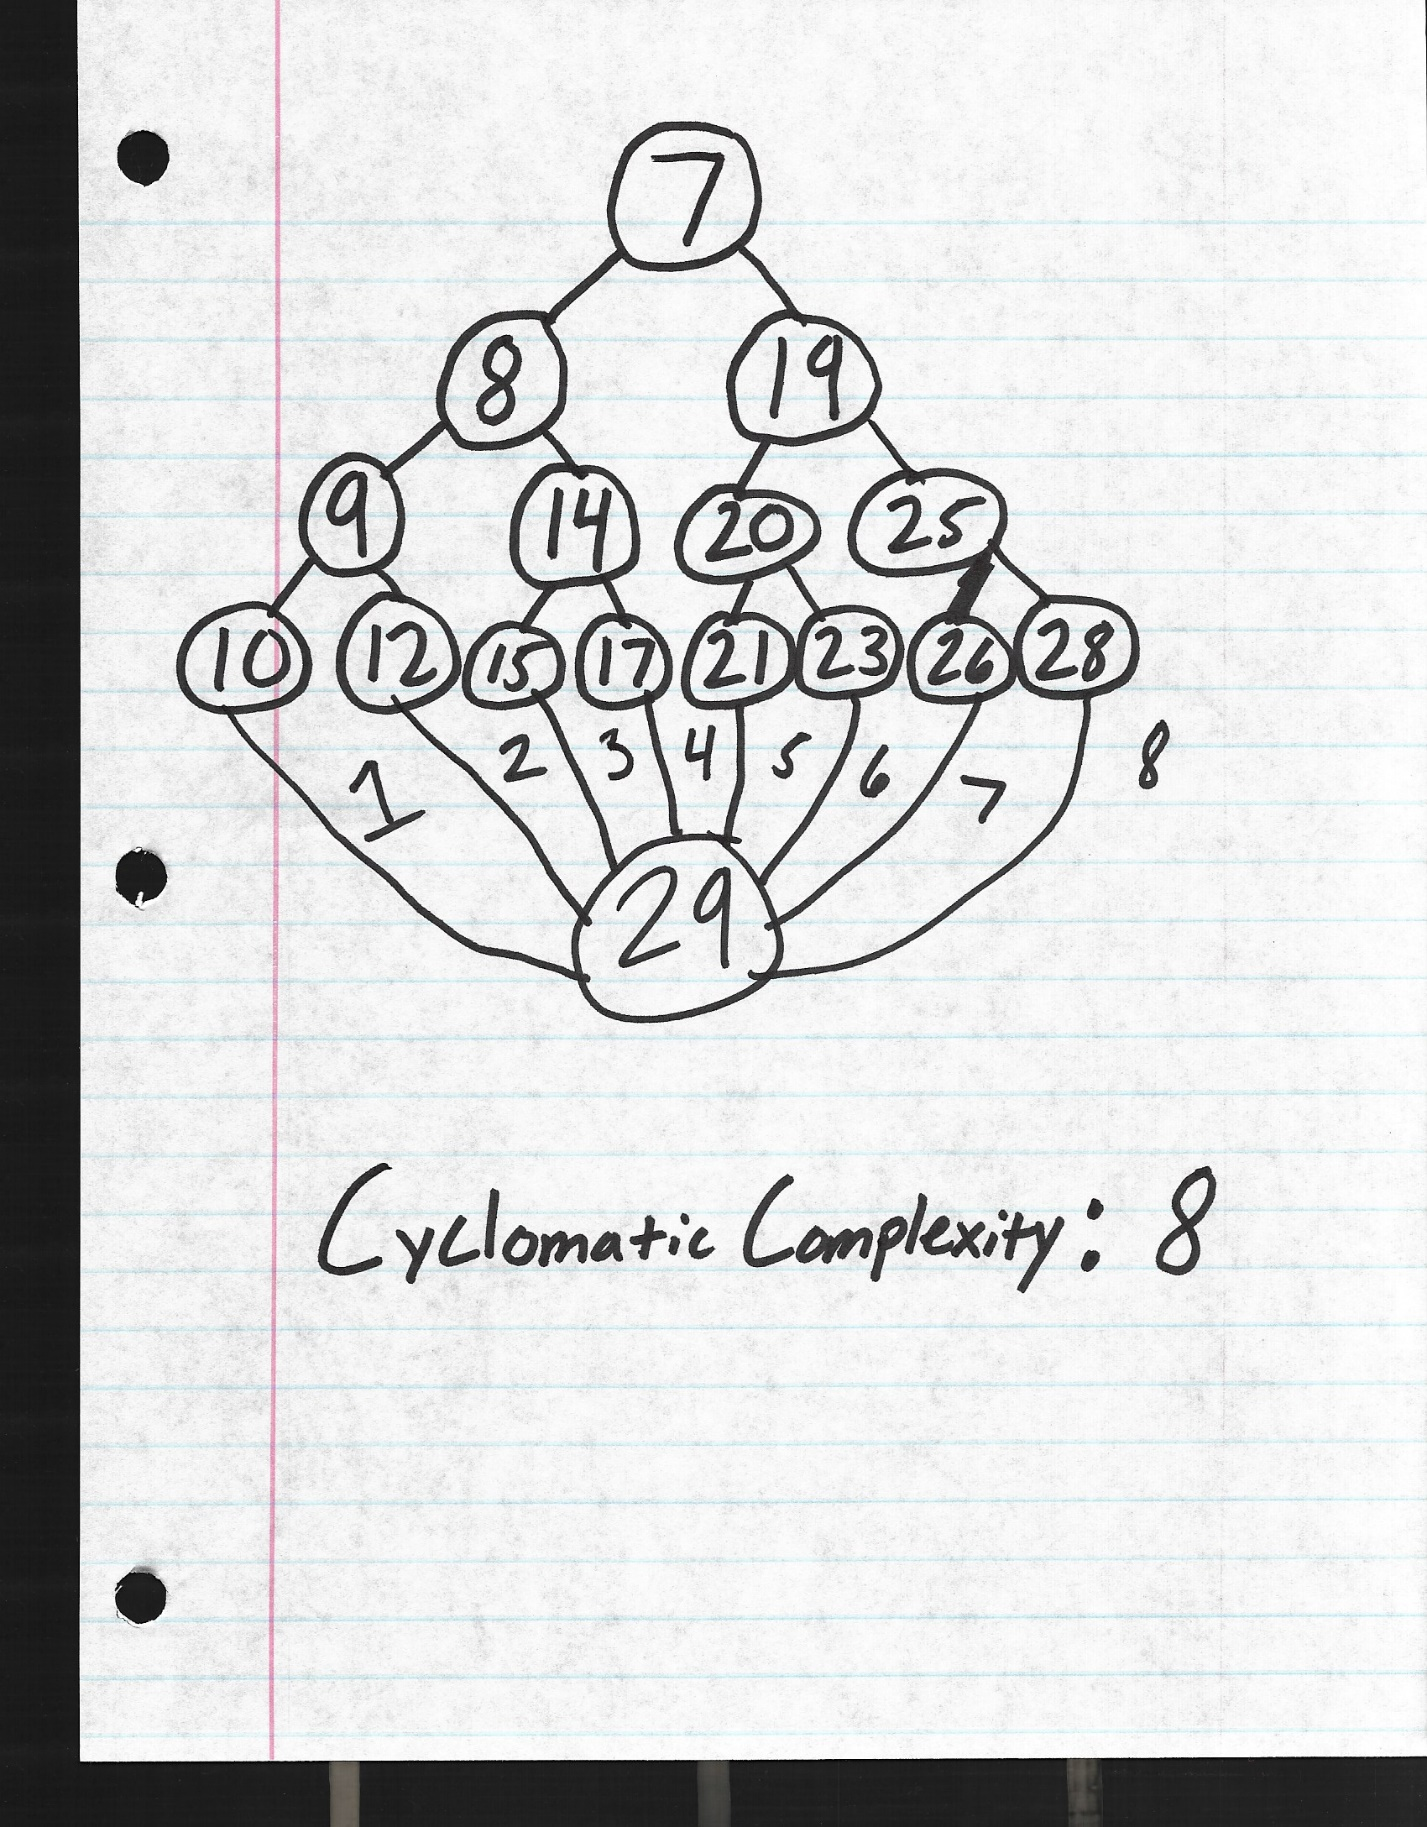 7
8 19
9 14 20 25
10 12 15 17 21 23 26 28
1 2 3 4 5 6 7 8
29
Cyclomatic Complexity: 8